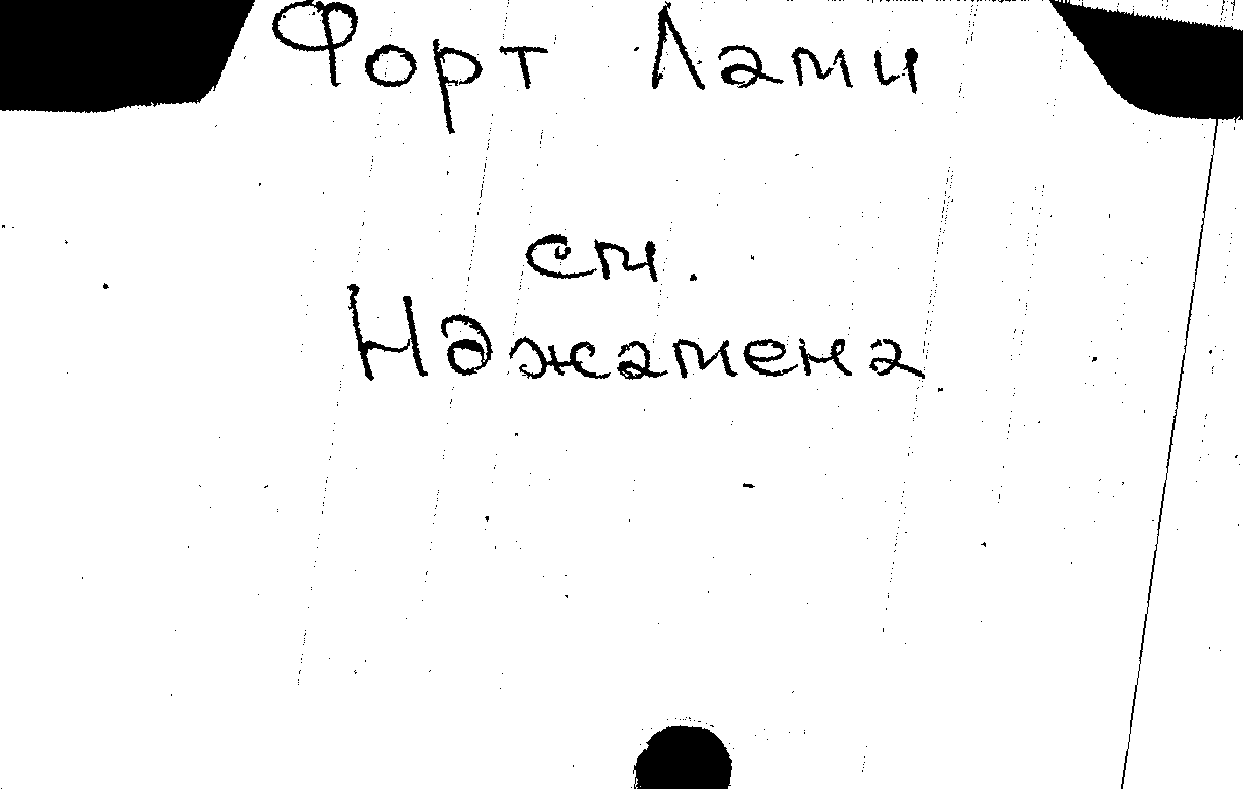 Форт Лами
см.
Нджамена